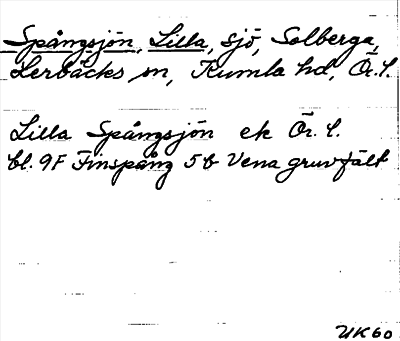 Spångsjön, Lilla, sjö, Solberga,
Lerbäcks sn, Kumla hd, Ör. l.
Lilla Spångsjön ek Ör. l.
bl. 9F Finspång 5b Vena gruvfält
UK60